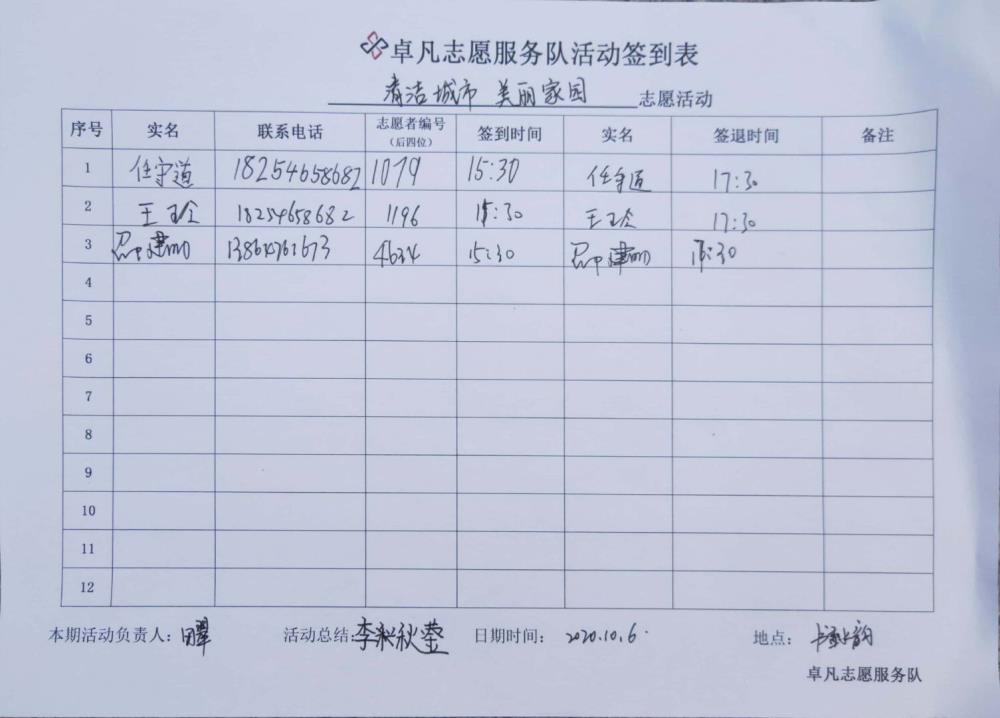 卓凡志愿服务队活动签到表
清洁城市 美丽家园 志愿活动
序号 实名 联系电话 志愿者编号（后四位） 签到时间 实名 签退时间 备注
1 任守道 18254658682 1079 15:30 任守道 17:30
2 王玉玲 18254658682 1196 15:30 王玉玲 17:30
3 建 13864761673 4634 15:30 建 :30
4
5
6
7
8
9
10
11
12
本期活动负责人： 田翠 活动总结： 李秋莹 日期时间： 2020.10.6. 地点：
卓凡志愿服务队